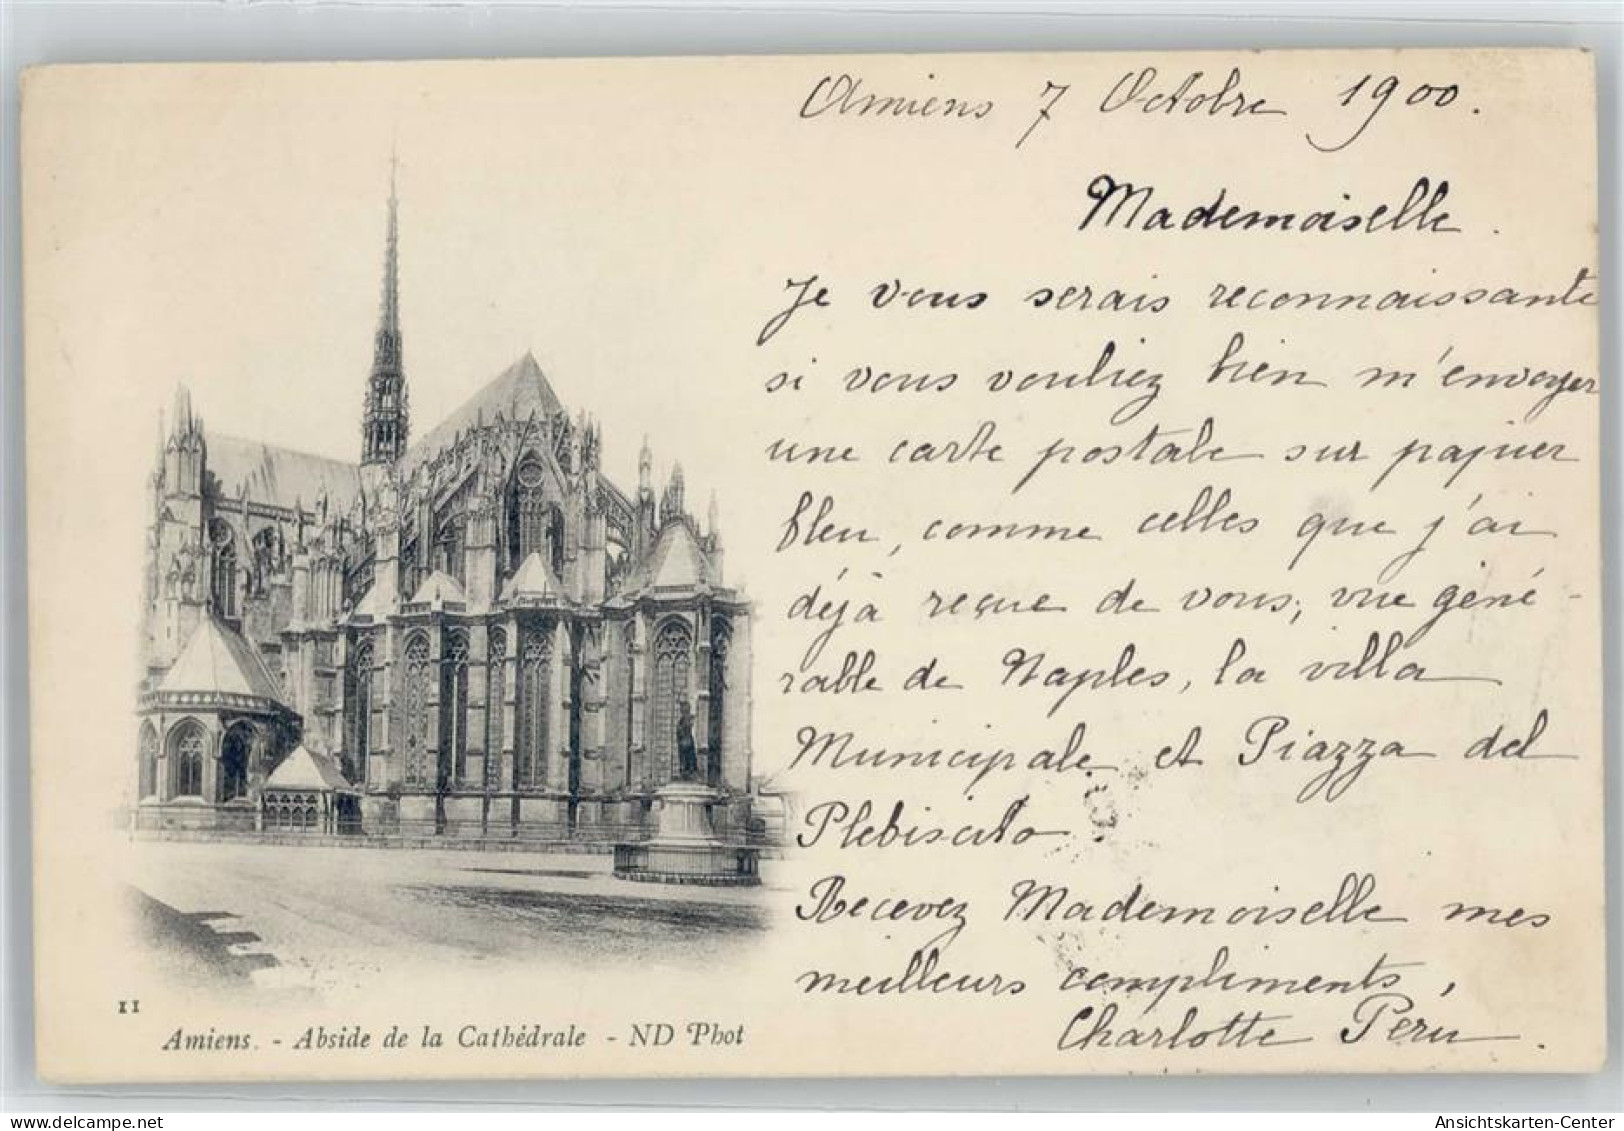 Amiens 7 Octobre 1900.
Mademoiselle.
Je vous serais reconnaissante
si vous vouliez bien m'envoyer
une carte postale sur papier
bleu, comme celles que j'ai
déjà reçue de vous; vue géné-
rable de Naples, la villa
Municipale et Piazza del
Plebiscito.
Recevez Mademoiselle mes
meilleurs compliments,
Charlotte Peru.
11
Amiens. - Abside de la Cathédrale - ND Phot
delcampe.net
Ansichtskarten-Center